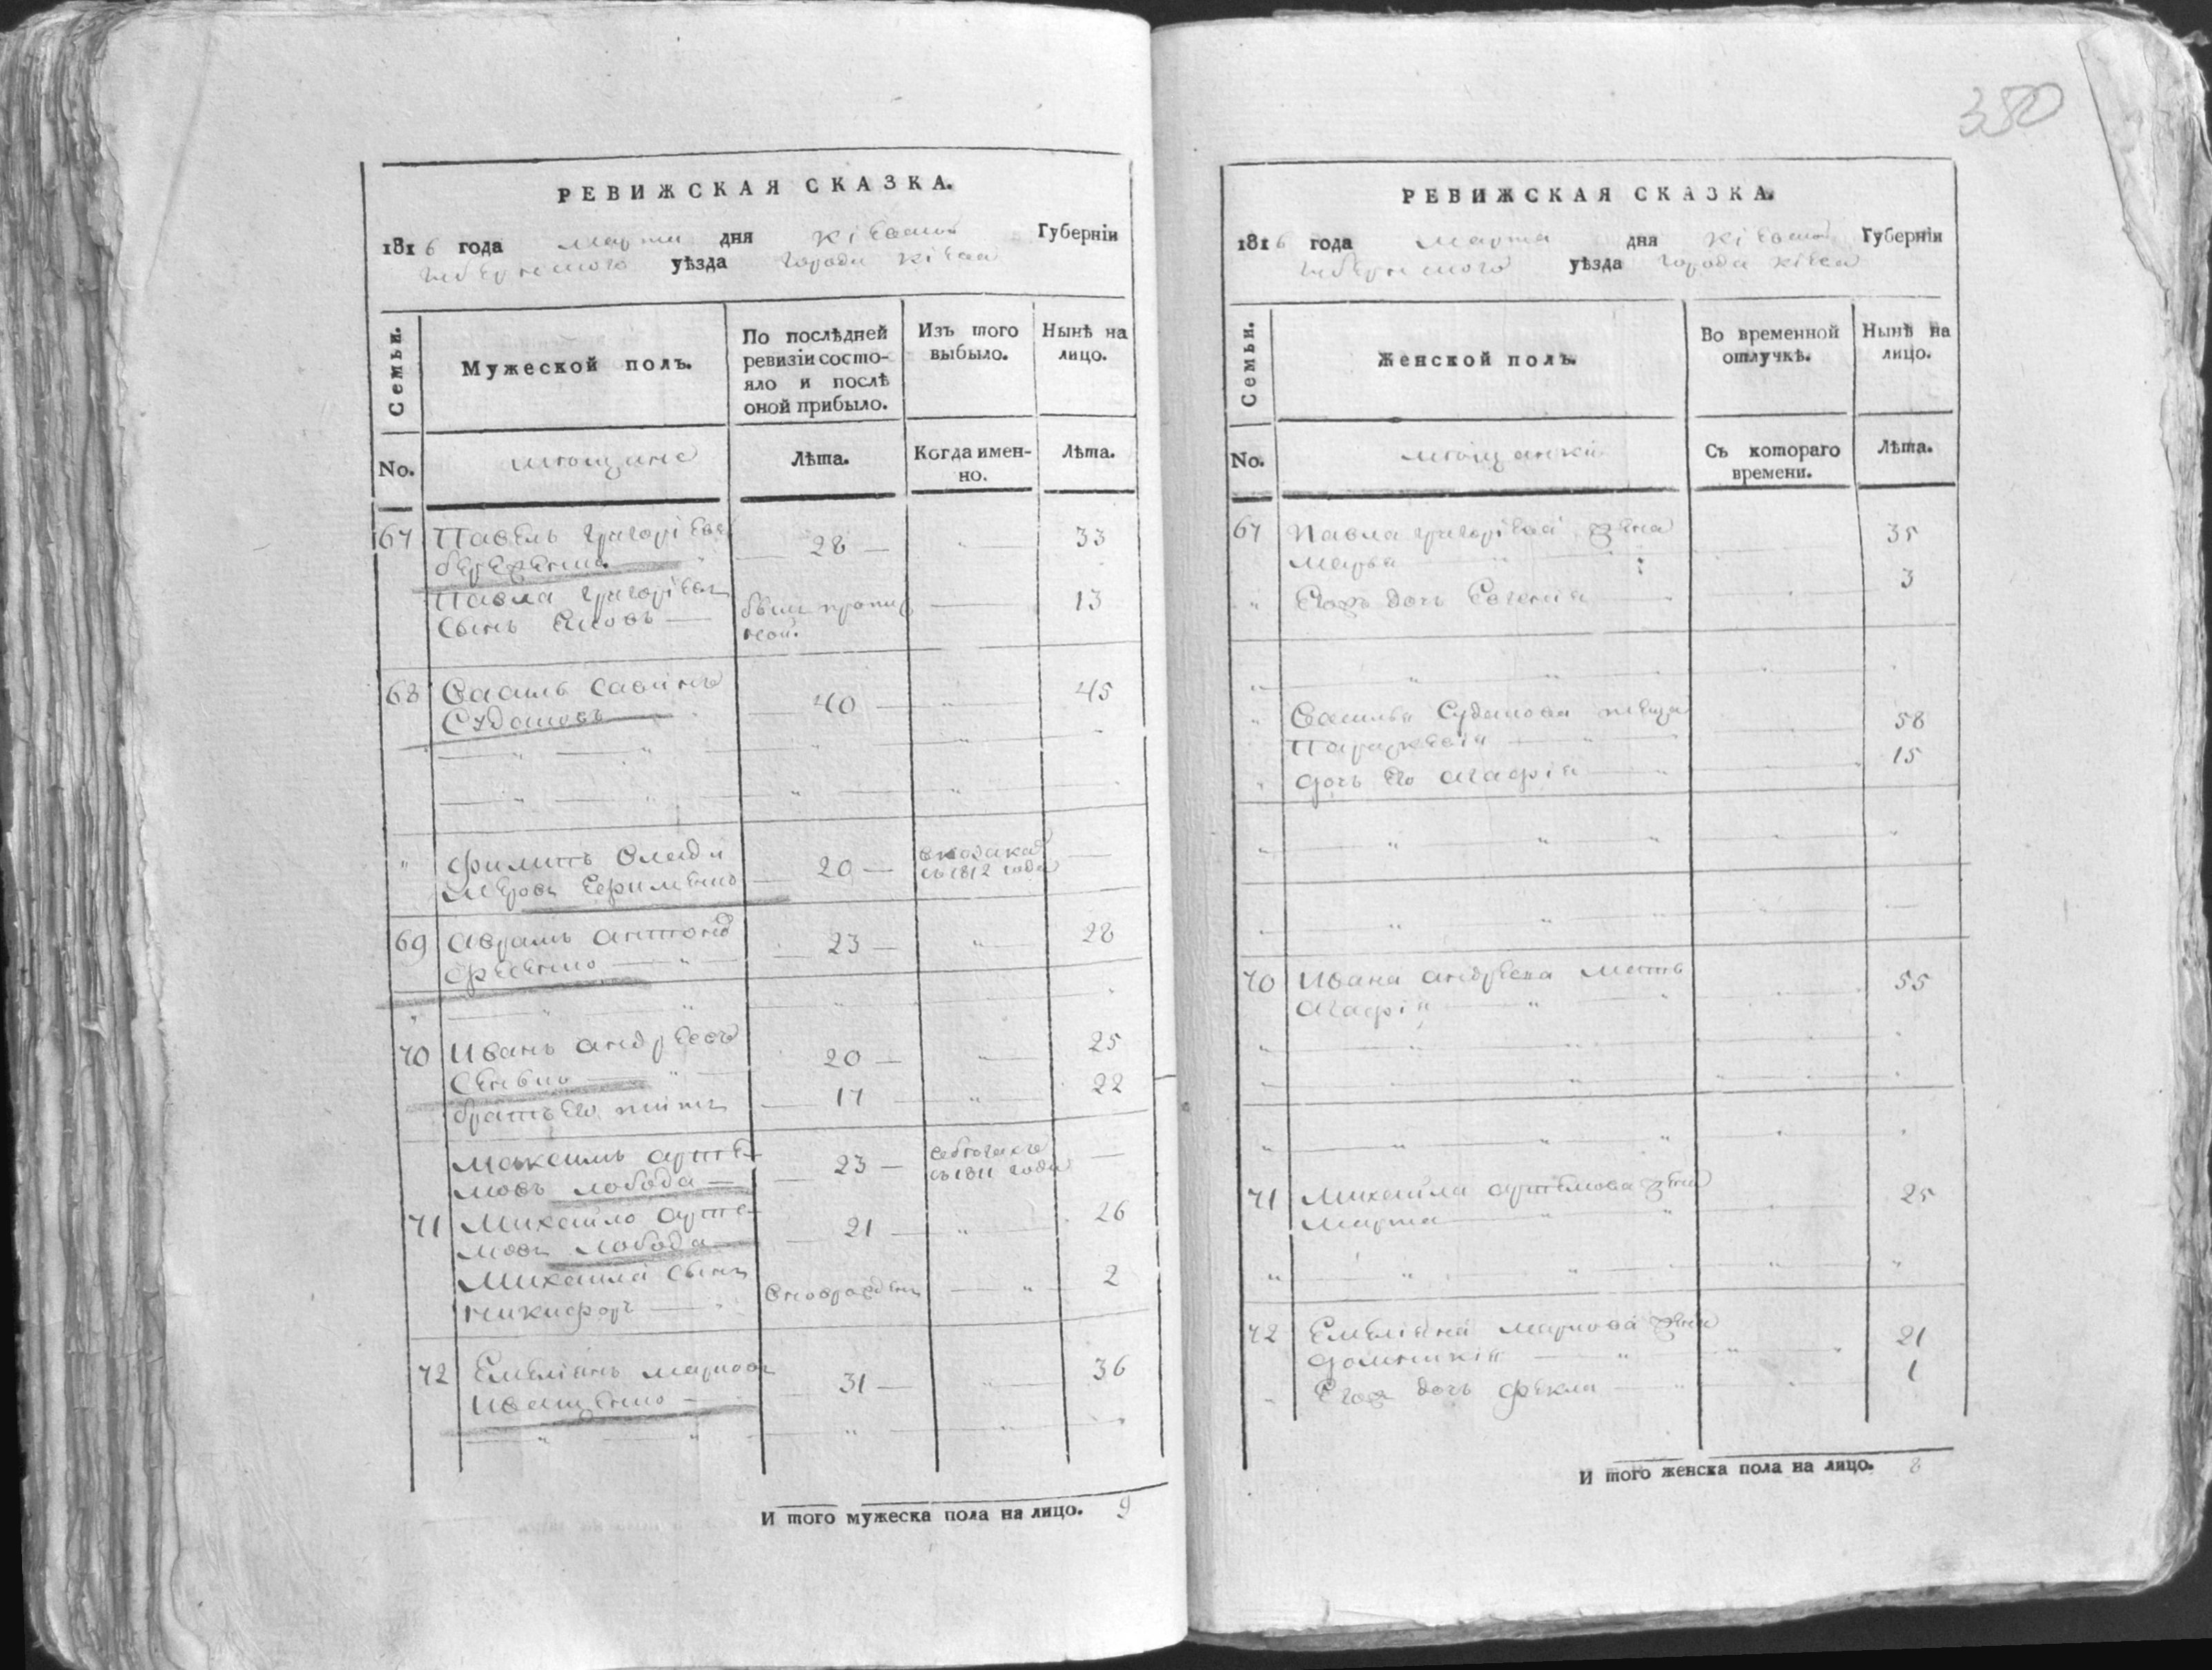 350
РЕВИЖСКАЯ СКАЗКА.
1816 года марта дня Кіевской Губерніи
уѣзда города Кіева
Семьи.
Мужеской полъ.
По послѣдней
ревизіи состо-
яло и послѣ
оной прибыло.
Изъ того
выбыло.
Нынѣ на
лицо.
No.
мѣщане
Лѣта.
Когда имен-
но.
Лѣта.
67 Павелъ Григоріевъ 28 33
Павла Григоріева
сынъ Яковъ 13
былъ пропи
68 Василь Савинъ 40 45
Судаковъ
Филипъ Олекси
Ефименко 20
с 1812 года
69 Аврамъ Антонов 23 28
Фесенко
70 Иванъ Андреевъ 20 25
братъ его 17 22
Максимъ Арте-
мовъ Лобода 23
с 1811 года
71 Михайло Арте-
мовъ Лобода 21 26
Михайла сынъ
Никифоръ вновърожденъ 2
72 Емеліянъ Марковъ 31 36
Иващенко
И того мужеска пола на лицо. 9
РЕВИЖСКАЯ СКАЗКА.
1816 года марта дня Кіевской Губерніи
уѣзда города Кіева
Семьи.
Женской полъ.
Во временной
отлучкѣ.
Нынѣ на
лицо.
No.
мѣщанки
Съ котораго
времени.
Лѣта.
67 Павла Григоріева жена 35
Марья
Егожъ дочь Евгенія 3
Василья Судакова теща
Параскевія 58
дочь его Агафія 15
70 Ивана Андреева мать 55
Агафія
71 Михайла Артемова жена 25
Марта
72 Емеліяна Маркова жена
Домникія 21
Егож дочь Фекла 1
И того женска пола на лицо. 8